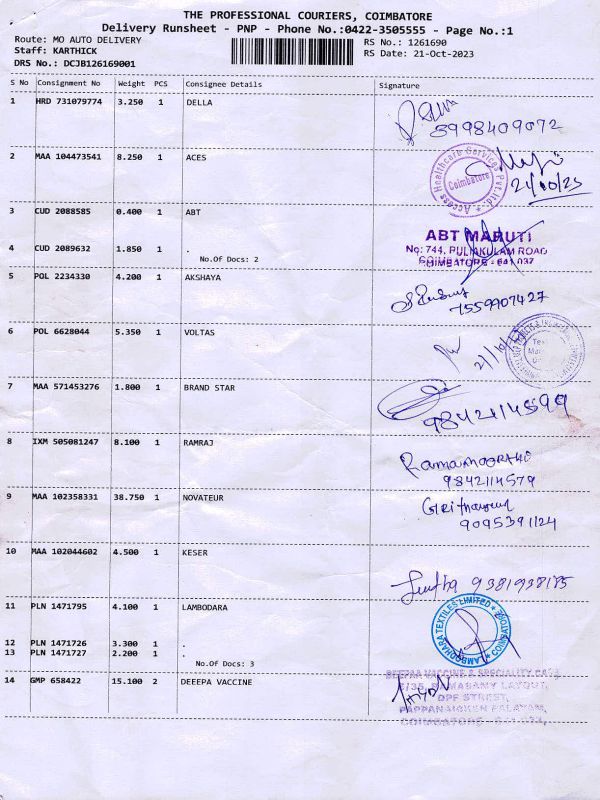 THE PROFESSIONAL COURIERS, COIMBATORE
Delivery Runsheet - PNP - Phone No.:0422-3505555 - Page No.:1
Route: MO AUTO DELIVERY
RS No.: 1261690
Staff: KARTHICK
RS Date: 21-Oct-2023
DRS No.: DCJB126169001
S No Consignment No Weight PCS Consignee Details Signature
1 HRD 731079774 3.250 1 DELLA
5998409072
2 MAA 104473541 8.250 1 ACES
Access Healthcare Services Pvt.Ltd.
Coimbatore
21/10/23
3 CUD 2088585 0.400 1 ABT
ABT MARUTI
No: 744, PULIAKULAM ROAD
COIMBATORE - 641 037
4 CUD 2089632 1.850 1 .
No.Of Docs: 2
5 POL 2234330 4.200 1 AKSHAYA
7559907427
6 POL 6628044 5.350 1 VOLTAS
7 MAA 571453276 1.800 1 BRAND STAR
9842114599
8 IXM 505081247 8.100 1 RAMRAJ
Ramamoorthi
9842114579
9 MAA 102358331 38.750 1 NOVATEUR
9095391124
10 MAA 102044602 4.500 1 KESER
9381938185
11 PLN 1471795 4.100 1 LAMBODARA
LAMBODHARA TEXTILES LIMITED
COIMBATORE
12 PLN 1471726 3.300 1 .
13 PLN 1471727 2.200 1 .
No.Of Docs: 3
14 GMP 658422 15.100 2 DEEEPA VACCINE
DEEPAA VACCINE & SPECIALITY CARE
LAYOUT,
DPF STREET,
PAPPANAICKEN PALAYAM,
COIMBATORE - 641 037.